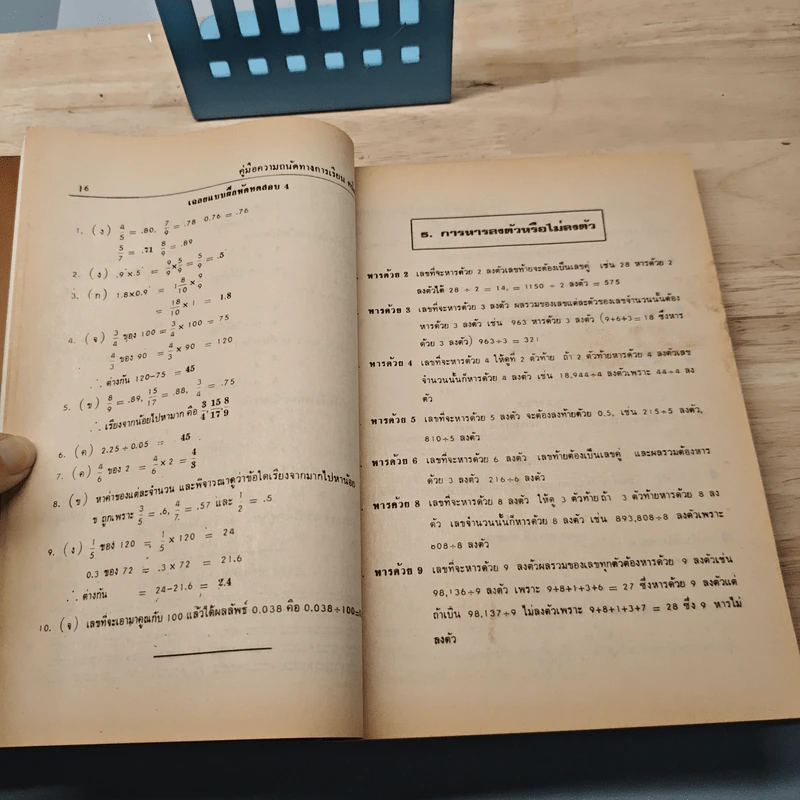 16
คู่มือความถนัดทางการเรียน
เฉลยแบบฝึกหัดทดสอบ 4
1. (ง) 4/5 = .80, 7/9 = .78 0.76 = .76
5/7 = .71 8/9 = .89
2. (ง) .9̇×.5̇ = 9/9×5/9 = 5/9 = .5̇
3. (ก) 1.8×0.9̇ = 1 8/10 × 9/9
= 18/10 × 1 = 1.8
4. (จ) 3/4 ของ 100 = 3/4 × 100 = 75
4/3 ของ 90 = 4/3 × 90 = 120
∴ ต่างกัน 120-75 = 45
5. (ข) 8/9 = .89, 15/17 = .88, 3/4 = .75
∴ เรียงจากน้อยไปหามาก คือ 3/4, 15/17, 8/9
6. (ค) 2.25÷0.05 = 45
7. (ค) 4/6 ของ 2 = 4/6 × 2 = 4/3
8. (ข) หาค่าของแต่ละจำนวน และพิจารณาดูว่าข้อใดเรียงจากมากไปหาน้อย
ข ถูกเพราะ 3/5 = .6, 4/7 = .57 และ 1/2 = .5
9. (ง) 1/5 ของ 120 = 1/5 × 120 = 24
0.3 ของ 72 = .3 × 72 = 21.6
∴ ต่างกัน = 24-21.6 = 2.4
10. (จ) เลขที่จะเอามาคูณกับ 100 แล้วได้ผลลัพธ์ 0.038 คือ 0.038÷100=
5. การหารลงตัวหรือไม่ลงตัว
หารด้วย 2 เลขที่จะหารด้วย 2 ลงตัวเลขท้ายจะต้องเป็นเลขคู่ เช่น 28 หารด้วย 2
ลงตัวได้ 28 ÷ 2 = 14, = 1150 ÷ 2 ลงตัว = 575
หารด้วย 3 เลขที่จะหารด้วย 3 ลงตัว ผลรวมของเลขแต่ละตัวของเลขจำนวนนั้นต้อง
หารด้วย 3 ลงตัว เช่น 963 หารด้วย 3 ลงตัว (9+6+3=18 ซึ่งหาร
ด้วย 3 ลงตัว) 963÷3 = 321
หารด้วย 4 เลขที่จะหารด้วย 4 ให้ดูที่ 2 ตัวท้าย ถ้า 2 ตัวท้ายหารด้วย 4 ลงตัวเลข
จำนวนนั้นก็หารด้วย 4 ลงตัว เช่น 18,944÷4 ลงตัวเพราะ 44÷4 ลง
ตัว
หารด้วย 5 เลขที่จะหารด้วย 5 ลงตัว จะต้องลงท้ายด้วย 0.5, เช่น 215÷5 ลงตัว,
810÷5 ลงตัว
หารด้วย 6 เลขที่จะหารด้วย 6 ลงตัว เลขท้ายต้องเป็นเลขคู่ และผลรวมต้องหาร
ด้วย 3 ลงตัว 216÷6 ลงตัว
หารด้วย 8 เลขที่จะหารด้วย 8 ลงตัว ให้ดู 3 ตัวท้าย ถ้า 3 ตัวท้ายหารด้วย 8 ลง
ตัว เลขจำนวนนั้นก็หารด้วย 8 ลงตัว เช่น 893,808÷8 ลงตัวเพราะ
808÷8 ลงตัว
หารด้วย 9 เลขที่จะหารด้วย 9 ลงตัวผลรวมของเลขทุกตัวต้องหารด้วย 9 ลงตัวเช่น
98,136÷9 ลงตัว เพราะ 9+8+1+3+6 = 27 ซึ่งหารด้วย 9 ลงตัวแต่
ถ้าเป็น 98,137÷9 ไม่ลงตัวเพราะ 9+8+1+3+7 = 28 ซึ่ง 9 หารไม่
ลงตัว